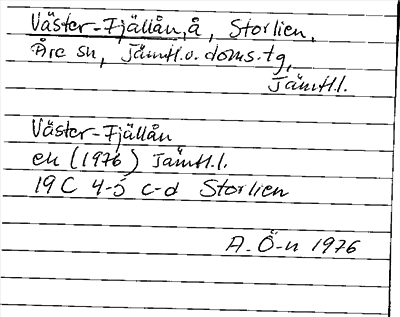 Väster-Fjällån, å, Storlien,
Åre sn, Jämtl.v. doms. tg,
Jämtl.l.
Väster-Fjällån
ek (1976) Jämtl.l.
19C 4-5 c-d Storlien
A. Ö-n 1976